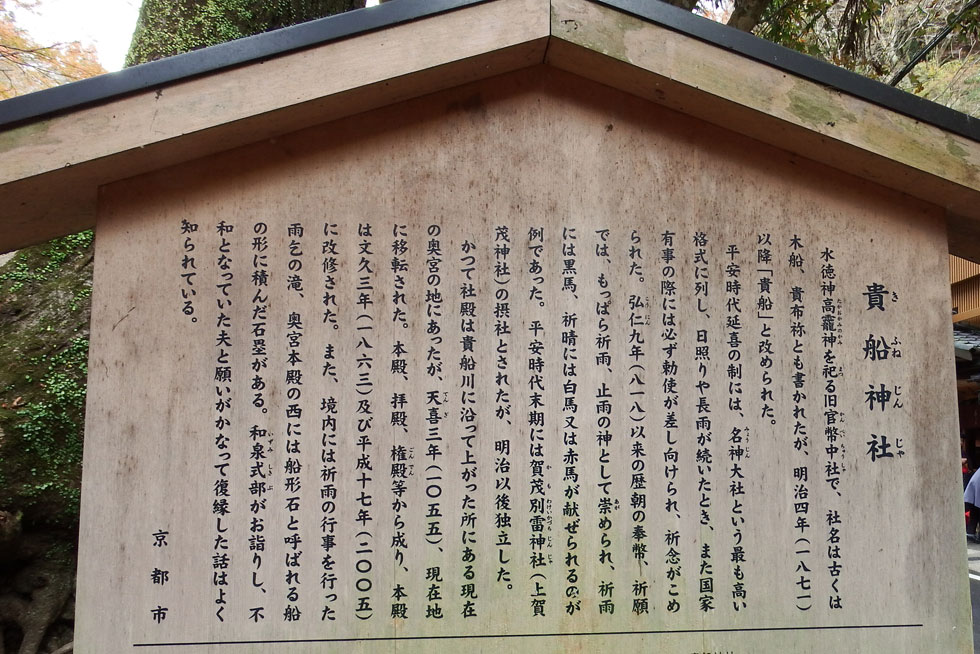 貴船神社
きふねじんじゃ
水徳神高龗神を祀る旧官幣中社で、社名は古くは
木船、貴布祢とも書かれたが、明治四年(一八七一)
以降「貴船」と改められた。
平安時代延喜の制には、名神大社という最も高い
格式に列し、日照りや長雨が続いたとき、また国家
有事の際には必ず勅使が差し向けられ、祈念がこめ
られた。弘仁九年(八一八)以来の歴朝の奉幣、祈願
では、もっぱら祈雨、止雨の神として崇められ、祈雨
には黒馬、祈晴には白馬又は赤馬が献ぜられるのが
例であった。平安時代末期には賀茂別雷神社(上賀
茂神社)の摂社とされたが、明治以後独立した。
かつて社殿は貴船川に沿って上がった所にある現在
の奥宮の地にあったが、天喜三年(一〇五五)、現在地
に移転された。本殿、拝殿、権殿等から成り、本殿
は文久三年(一八六三)及び平成十七年(二〇〇五)
に改修された。また、境内には祈雨の行事を行った
雨乞の滝、奥宮本殿の西には船形石と呼ばれる船
の形に積んだ石塁がある。和泉式部がお詣りし、不
和となっていた夫と願いがかなって復縁した話はよく
知られている。
京都市